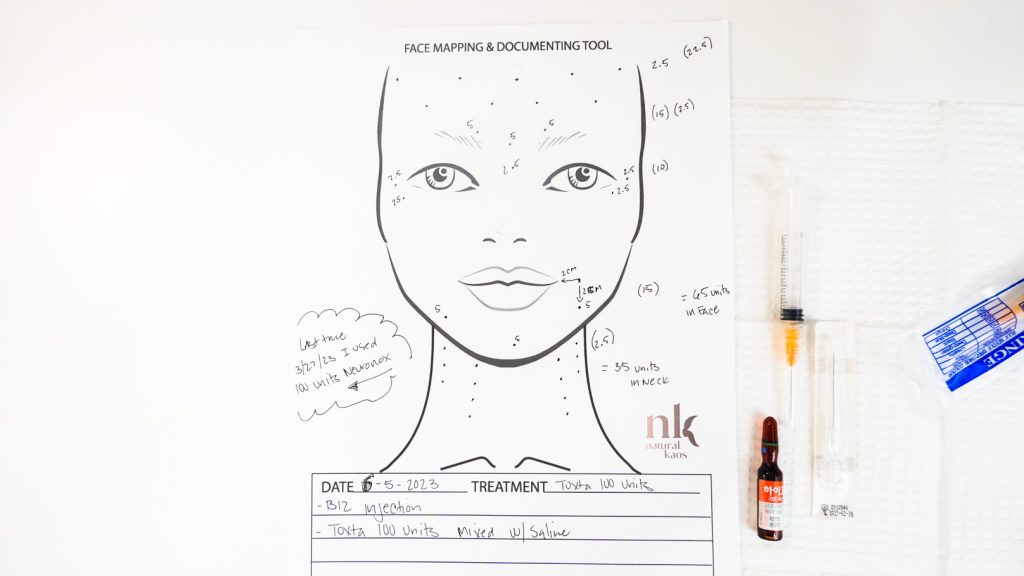 FACE MAPPING & DOCUMENTING TOOL
2.5 (22.5)
(15) (2.5)
5 5
5
2.5
(10)
2.5 2.5
25 2.5
2cm
(15)
5 5
= 65 units
in Face
5
(2.5)
= 35 units
in Neck
Last time
3/27/23 I used
100 units Neuronox
nk
natural
kaos
DATE 6-5-2023 TREATMENT Toxta 100 units
- B12 Injection
- Toxta 100 units mixed w/ Saline